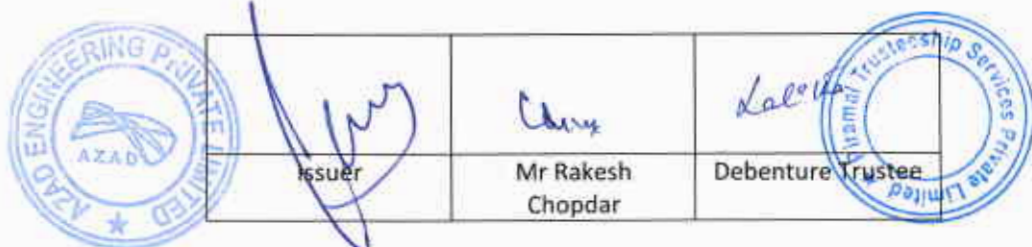 AZAD ENGINEERING PRIVATE LIMITED
AZAD
Issuer
Mr Rakesh
Chopdar
Debenture Trustee
Piramal Trusteeship Services Private Limited